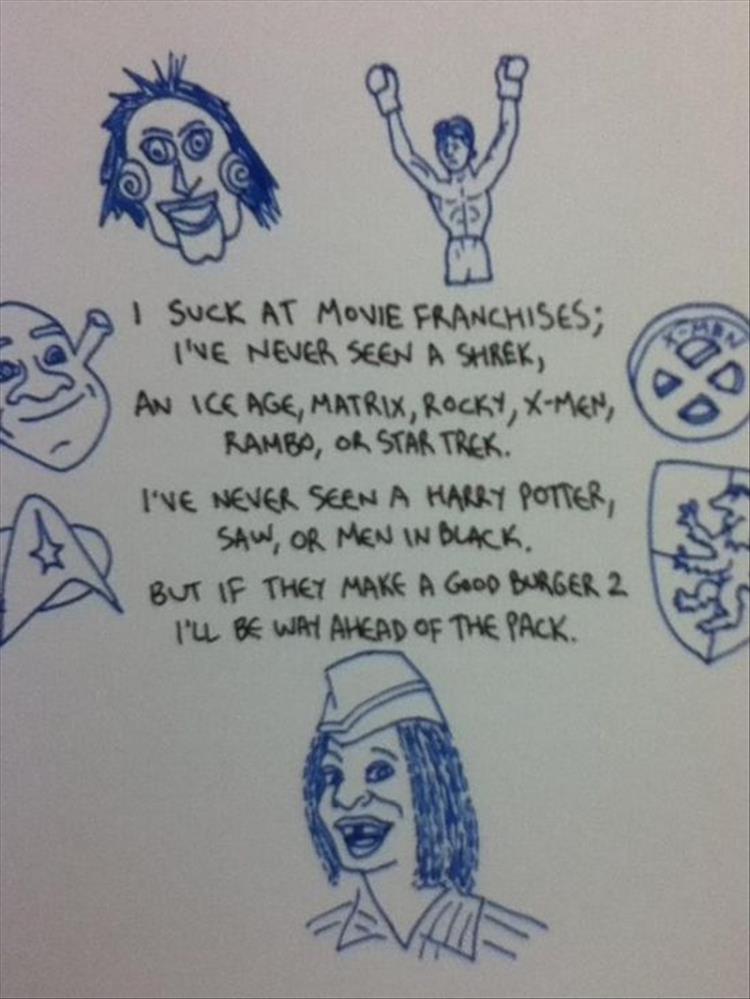 I SUCK AT MOVIE FRANCHISES;
I'VE NEVER SEEN A SHREK,
AN ICE AGE, MATRIX, ROCKY, X-MEN,
RAMBO, OR STAR TREK.
I'VE NEVER SEEN A HARRY POTTER,
SAW, OR MEN IN BLACK.
BUT IF THEY MAKE A GOOD BURGER 2
I'LL BE WAY AHEAD OF THE PACK.
X-MEN